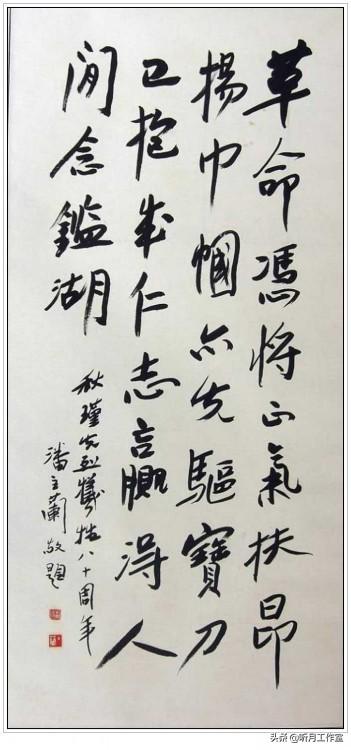 革命馮將正氣扶昂
揚巾幗亦先驅寶刀
已抱成仁志贏得人
間念鑑湖
秋瑾先烈犧牲八十周年
潘主蘭敬題
头条 @听月工作室